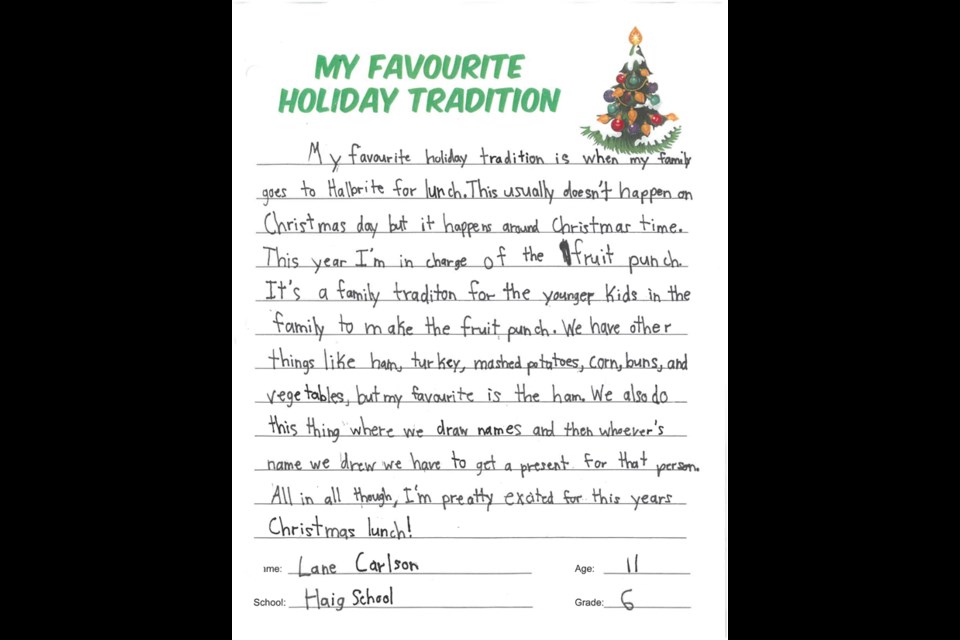 MY FAVOURITE
HOLIDAY TRADITION
My favourite holiday tradition is when my family
goes to Halbrite for lunch. This usually doesn't happen on
Christmas day but it happens around Christmas time.
This year I'm in charge of the fruit punch.
It's a family traditon for the younger kids in the
family to make the fruit punch. We have other
things like ham, turkey, mashed potatoes, corn, buns, and
vegetables, but my favourite is the ham. We also do
this thing where we draw names and then whoever's
name we drew we have to get a present for that person.
All in all though, I'm preatty excited for this years
Christmas lunch!
me: Lane Carlson Age: 11
School: Haig School Grade: 6